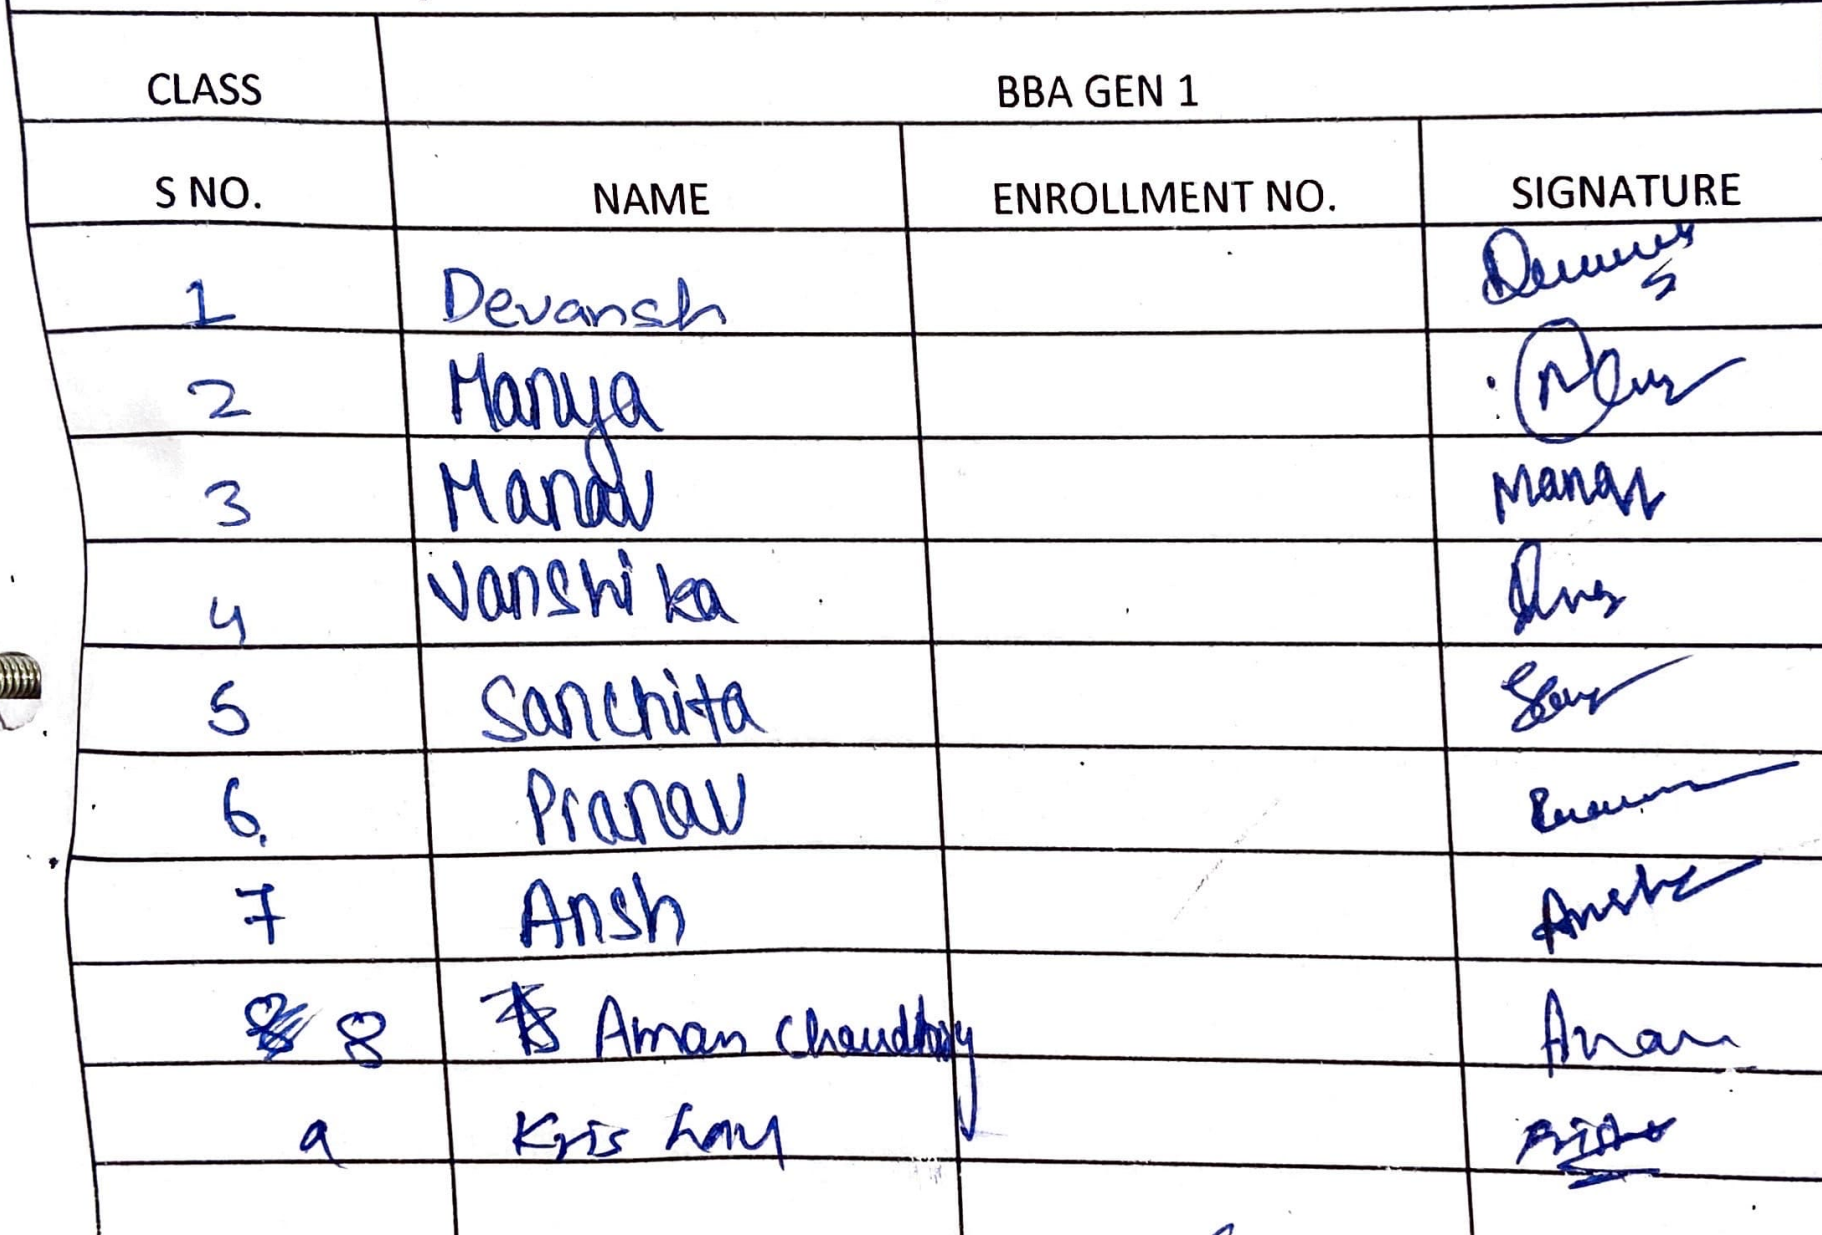 CLASS BBA GEN 1
S NO. NAME ENROLLMENT NO. SIGNATURE
1 Devansh
2 Manya
3 Manav Manav
4 Vanshika
5 Sanchita
6. Pranav
7 Ansh Ansh
8 Aman Chaudhary Aman
9 Kris hay